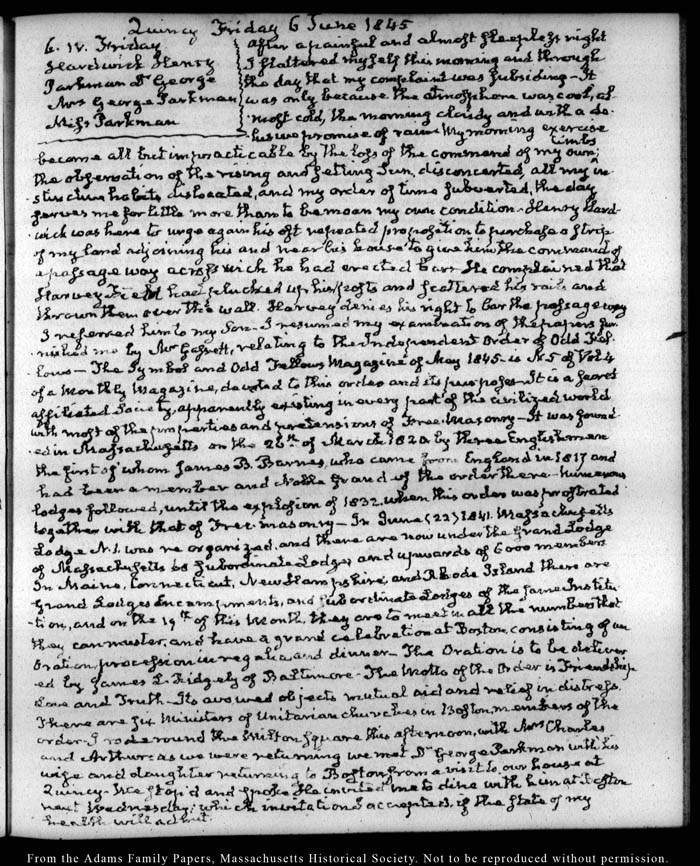 Quincy Friday 6 June 1845
6. IV. Friday
Hardwick Henry
Parkman Dr George
Mrs George Parkman
Miss Parkman
After a painful and almost sleepless night
I flattered myself this morning and through
the day that my complaint was subsiding - It
was only because the atmosphere was cool, al-
most cold, the morning cloudy and with a de-
lusive promise of rain. My morning exercise
become all but impracticable by the loss of the command of my own limbs,
the observation of the rising and setting Sun, disconcerted, all my in-
stinctive habits dislocated, and my order of time subverted, the day
serves me for little more than to bemoan my own condition - Henry Hard-
wick was here to urge again his oft repeated proposition to purchase a strip
of my land adjoining his and near his house to give him the command of
a passage way across which he had erected bars. He complained that
Harvey Field had plucked up his posts and scattered his rails and
thrown them over the wall. Harvey denies his right to bar the passage way
I referred him to my Son - I resumed my examination of the papers fur-
nished me by Mr Gassett, relating to the Independent Order of Odd Fel-
lows - The Symbol and Odd Fellows Magazine of May 1845 is N. 5 of Vol. 4
of a Monthly Magazine, devoted to this order and its purposes - It is a secret
affiliated Society, apparently existing in every part of the civilized world
with most of the properties and pretensions of Free-Masonry - It was found-
ed in Massachusetts on the 26th of March 1820 by three Englishmen
the first of whom James B. Barnes, who came from England in 1817 and
had been a member and Noble Grand of the order there - Numerous
lodges followed, until the explosion of 1832, when this order was prostrated
together with that of Free-masonry - In June (22) 1841. Massachusetts
Lodge N. 1. was re organized, and there are now under the Grand Lodge
of Massachusetts Subordinate Lodges and upwards of 6000 members
In Maine, Connecticut, New Hampshire, and Rhode Island there are
Grand Lodges Encampments, and subordinate Lodges of the same Institu-
tion, and on the 19th of this Month, they are to meet in all the numbers that
they can muster, and have a grand celebration at Boston, consisting of an
Oration, procession in regalia and dinner. The Oration is to be deliver-
ed by James L. Ridgely of Baltimore - The Motto of the Order is Friendship
Love and Truth - Its avowed objects mutual aid and relief in distress.
There are six Ministers of Unitarian churches in Boston, members of the
order. I rode round the Milton Square this afternoon, with Mrs Charles
and Arthur: as we were returning we met Dr George Parkman with his
wife and daughter returning to Boston from a visit to our house at
Quincy. We stop'd and spoke. He invited me to dine with him at
next Wednesday; which invitation I accepted, if the state of my
health will admit.
From the Adams Family Papers, Massachusetts Historical Society. Not to be reproduced without permission.